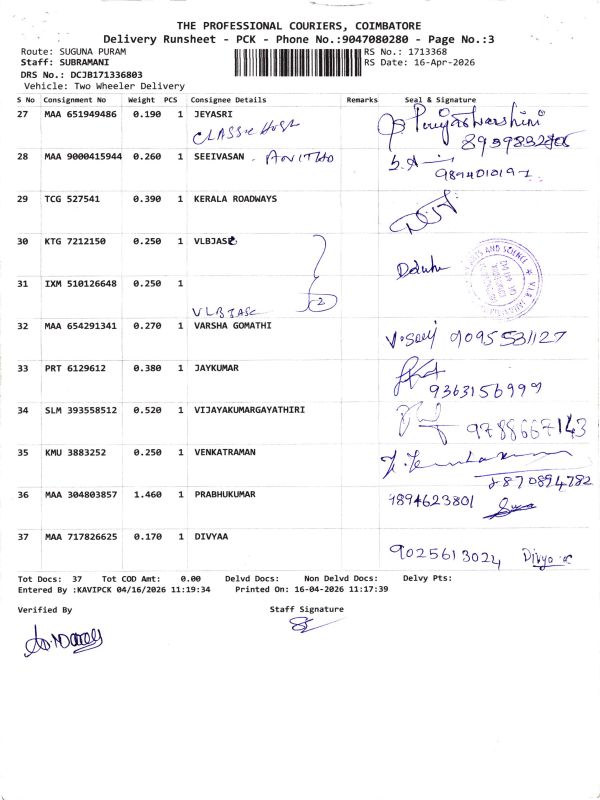 THE PROFESSIONAL COURIERS, COIMBATORE
Delivery Runsheet - PCK - Phone No.:9047080280 - Page No.:3
Route: SUGUNA PURAM RS No.: 1713368
Staff: SUBRAMANI RS Date: 16-Apr-2026
DRS No.: DCJB171336803
Vehicle: Two Wheeler Delivery
S No Consignment No Weight PCS Consignee Details Remarks Seal & Signature
27 MAA 651949486 0.190 1 JEYASRI
28 MAA 9000415944 0.260 1 SEEIVASAN
29 TCG 527541 0.390 1 KERALA ROADWAYS
30 KTG 7212150 0.250 1 VLBJASC
31 IXM 510126648 0.250 1
2
VLBJASC
32 MAA 654291341 0.270 1 VARSHA GOMATHI
9095581127
33 PRT 6129612 0.380 1 JAYKUMAR
9363156999
34 SLM 393558512 0.520 1 VIJAYAKUMARGAYATHIRI
9788667143
35 KMU 3883252 0.250 1 VENKATRAMAN
8870894782
36 MAA 304803857 1.460 1 PRABHUKUMAR
9894623801
37 MAA 717826625 0.170 1 DIVYAA
9025613024
Tot Docs: 37 Tot COD Amt: 0.00 Delvd Docs: Non Delvd Docs: Delvy Pts:
Entered By :KAVIPCK 04/16/2026 11:19:34 Printed On: 16-04-2026 11:17:39
Verified By Staff Signature